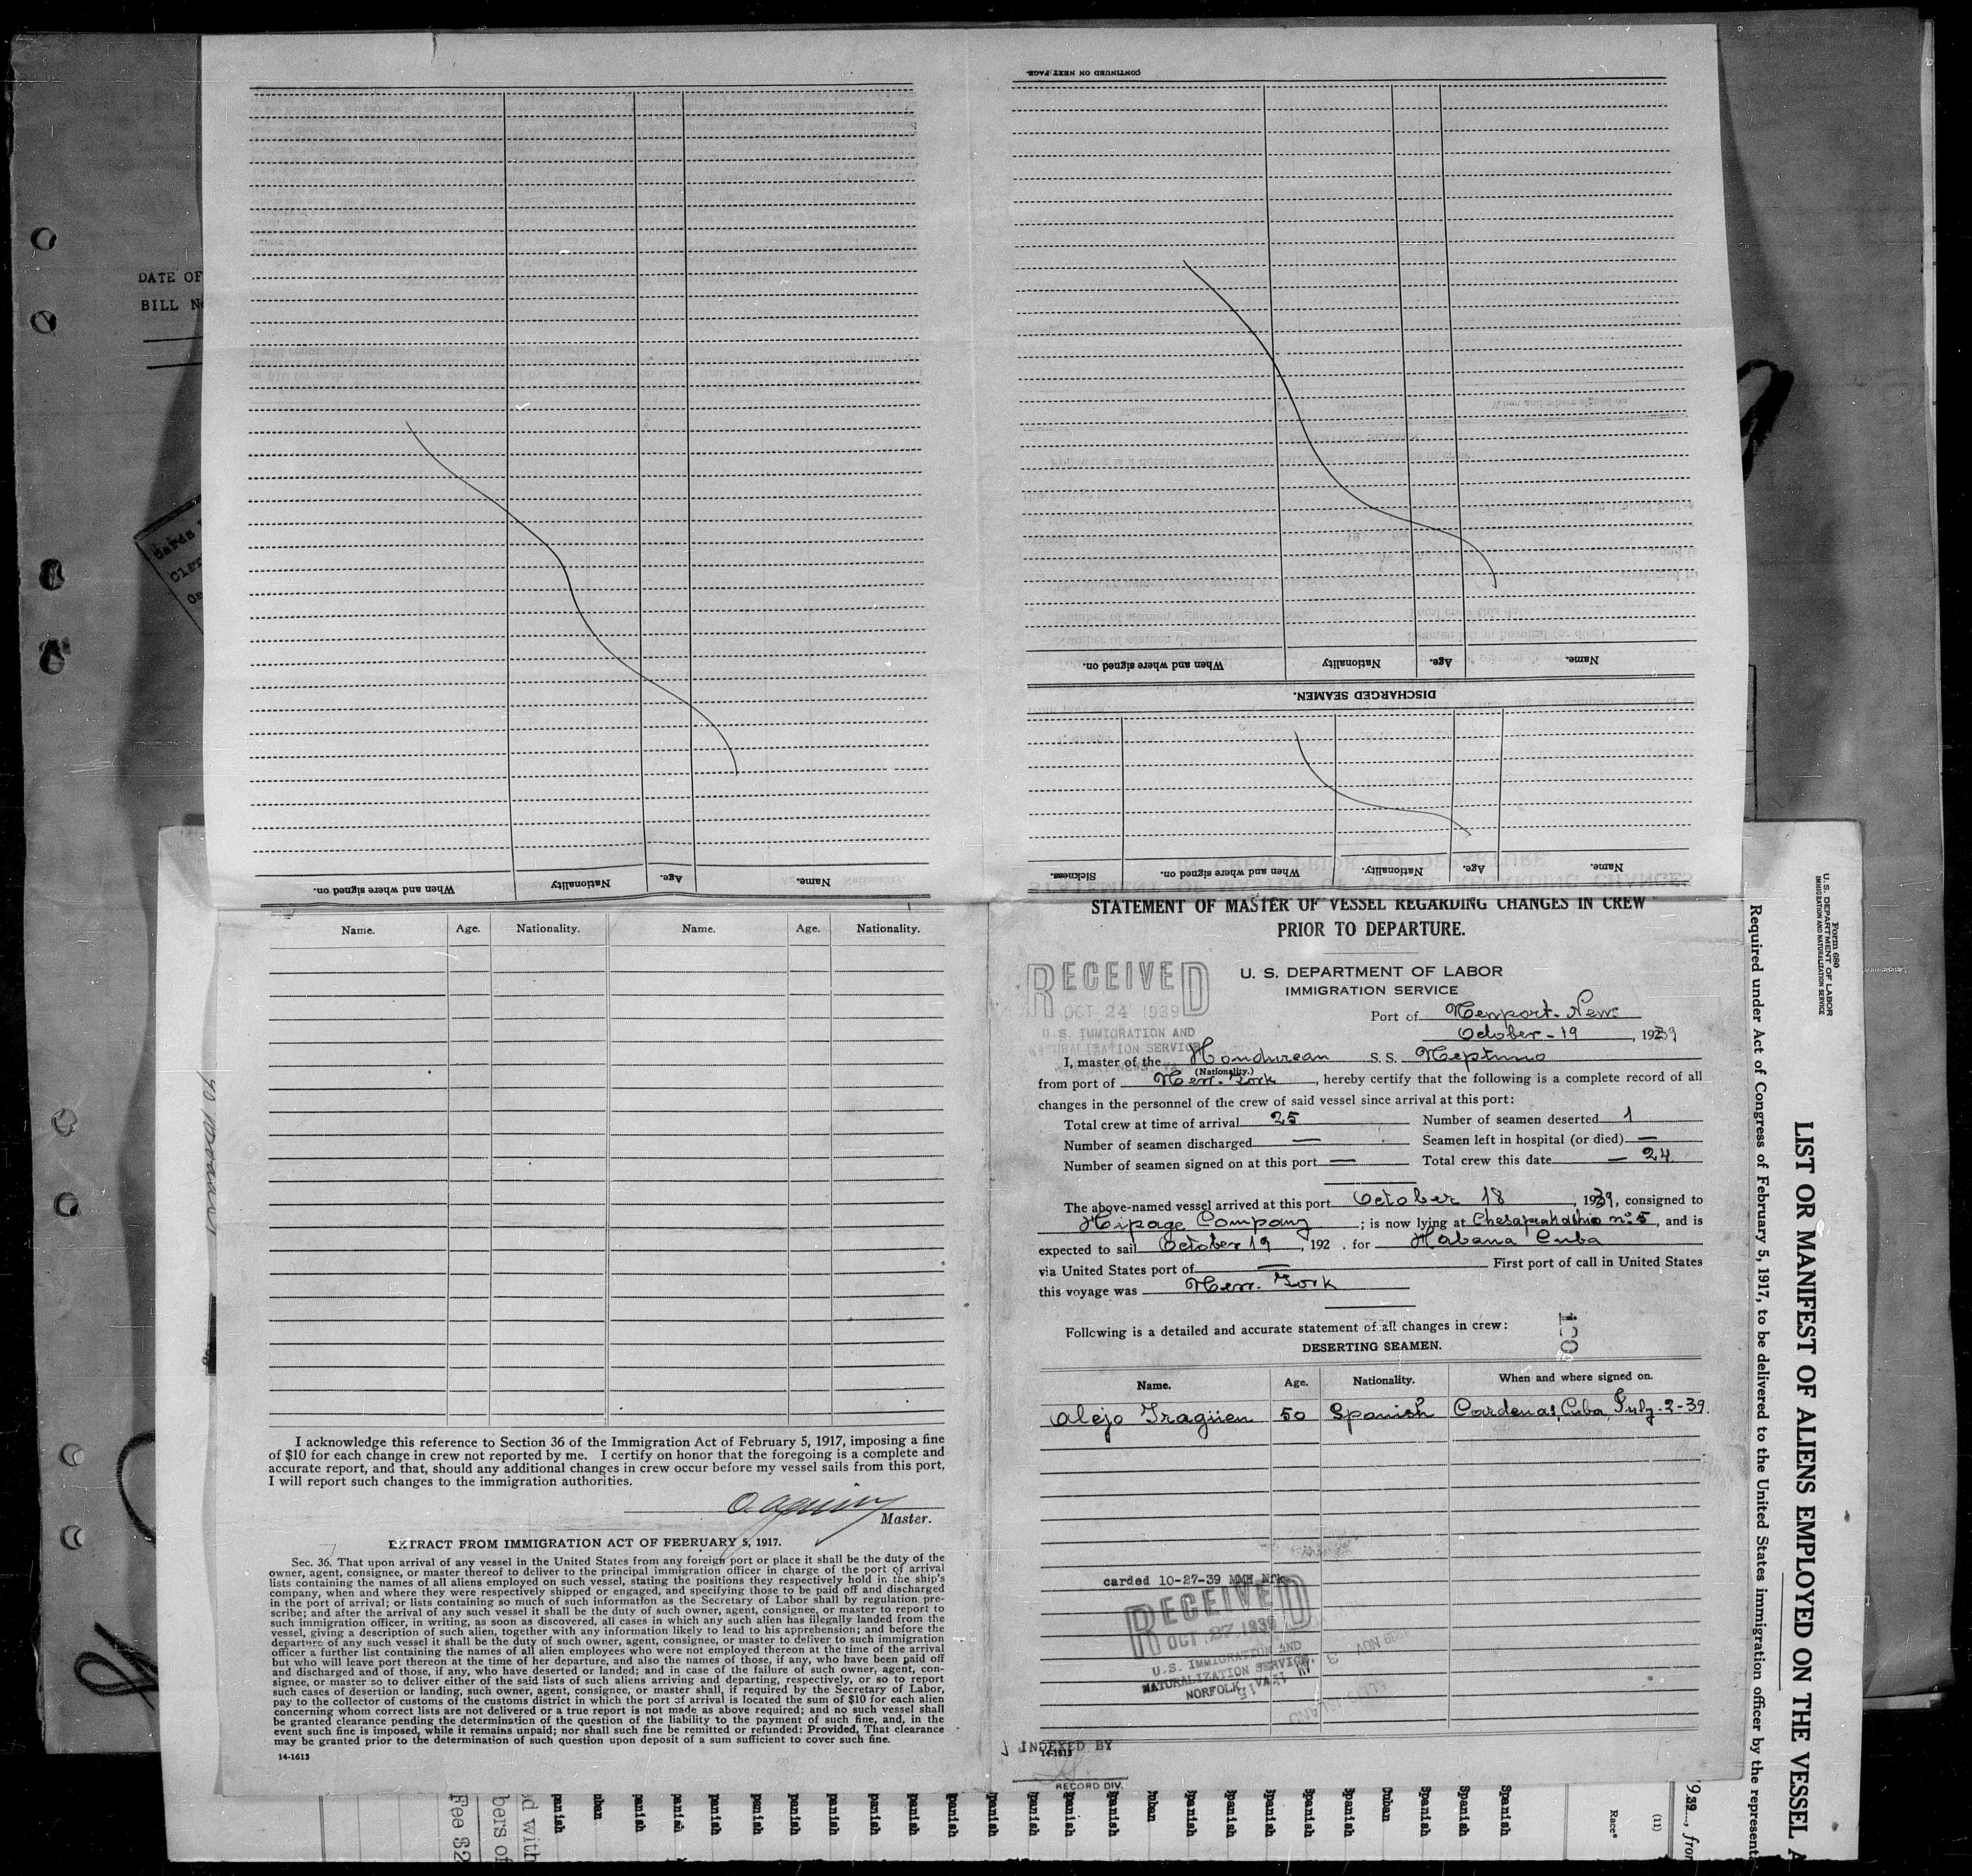 DATE OF
BILL
CONTINUED ON NEXT PAGE.
When and where signed on.
Nationality
Age.
Name.
DISCHARGED SEAMEN.
Sickness.
When and where signed on.
Nationality.
Age.
Name.
When and where signed on.
Nationality
Age.
Name.
Name. Age. Nationality. Name. Age. Nationality.
I acknowledge this reference to Section 36 of the Immigration Act of February 5, 1917, imposing a fine
of $10 for each change in crew not reported by me. I certify on honor that the foregoing is a complete and
accurate report, and that, should any additional changes in crew occur before my vessel sails from this port,
I will report such changes to the immigration authorities.
Master.
EXTRACT FROM IMMIGRATION ACT OF FEBRUARY 5, 1917.
Sec. 36. That upon arrival of any vessel in the United States from any foreign port or place it shall be the duty of the
owner, agent, consignee, or master thereof to deliver to the principal immigration officer in charge of the port of arrival
lists containing the names of all aliens employed on such vessel, stating the positions they respectively hold in the ship's
company, when and where they were respectively shipped or engaged, and specifying those to be paid off and discharged
in the port of arrival; or lists containing so much of such information as the Secretary of Labor shall by regulation pre-
scribe; and after the arrival of any such vessel it shall be the duty of such owner, agent, consignee, or master to report to
such immigration officer, in writing, as soon as discovered, all cases in which any such alien has illegally landed from the
vessel, giving a description of such alien, together with any information likely to lead to his apprehension; and before the
departure of any such vessel it shall be the duty of such owner, agent, consignee, or master to deliver to such immigration
officer a further list containing the names of all alien employees who were not employed thereon at the time of the arrival
but who will leave port thereon at the time of her departure, and also the names of those, if any, who have been paid off
and discharged and of those, if any, who have deserted or landed; and in case of the failure of such owner, agent, con-
signee, or master so to deliver either of the said lists of such aliens arriving and departing, respectively, or so to report
such cases of desertion or landing, such owner, agent, consignee, or master shall, if required by the Secretary of Labor,
pay to the collector of customs of the customs district in which the port of arrival is located the sum of $10 for each alien
concerning whom correct lists are not delivered or a true report is not made as above required; and no such vessel shall
be granted clearance pending the determination of the question of the liability to the payment of such fine, and, in the
event such fine is imposed, while it remains unpaid; nor shall such fine be remitted or refunded: Provided, That clearance
may be granted prior to the determination of such question upon deposit of a sum sufficient to cover such fine.
14-1613
STATEMENT OF MASTER OF VESSEL REGARDING CHANGES IN CREW
PRIOR TO DEPARTURE.
U. S. DEPARTMENT OF LABOR
IMMIGRATION SERVICE
RECEIVED
OCT 24 1939
U.S. IMMIGRATION AND
NATURALIZATION SERVICE
Port of Newport-News
October-19, 1939
I, master of the Hondurean S. S. Neptuno
(Nationality.)
from port of New-York, hereby certify that the following is a complete record of all
changes in the personnel of the crew of said vessel since arrival at this port:
Total crew at time of arrival 25 Number of seamen deserted 1
Number of seamen discharged — Seamen left in hospital (or died) —
Number of seamen signed on at this port — Total crew this date — 24
The above-named vessel arrived at this port October 18, 1939, consigned to
Hipage Company; is now lying at nº 5, and is
expected to sail October 19, 192 . for Habana Cuba
via United States port of — First port of call in United States
this voyage was New. York
Following is a detailed and accurate statement of all changes in crew:
100
DESERTING SEAMEN.
Name. Age. Nationality. When and where signed on.
Alejo Iragüen 50 Spanish Cardenas, Cuba, July-2-39.
carded 10-27-39 MMH Nfk
RECEIVED
OCT 27 1939
U.S. IMMIGRATION AND
NATURALIZATION SERVICE
NORFOLK, VA.
INDEXED BY
14-1613
RECORD DIV.
Form 680
U. S. DEPARTMENT OF LABOR
IMMIGRATION AND NATURALIZATION SERVICE
LIST OR MANIFEST OF ALIENS EMPLOYED ON THE VESSEL A
Required under Act of Congress of February 5, 1917, to be delivered to the United States immigration officer by the represent
(11)
Race*
Spanish
Spanish
Spanish
Cuban
Spanish
Spanish
Spanish
Spanish
Spanish
Cuban
Spanish
Spanish
Spanish
Spanish
Spanish
panish
panish
panish
panish
panish
panish
uban
panish
d with
bers of
Fee $2